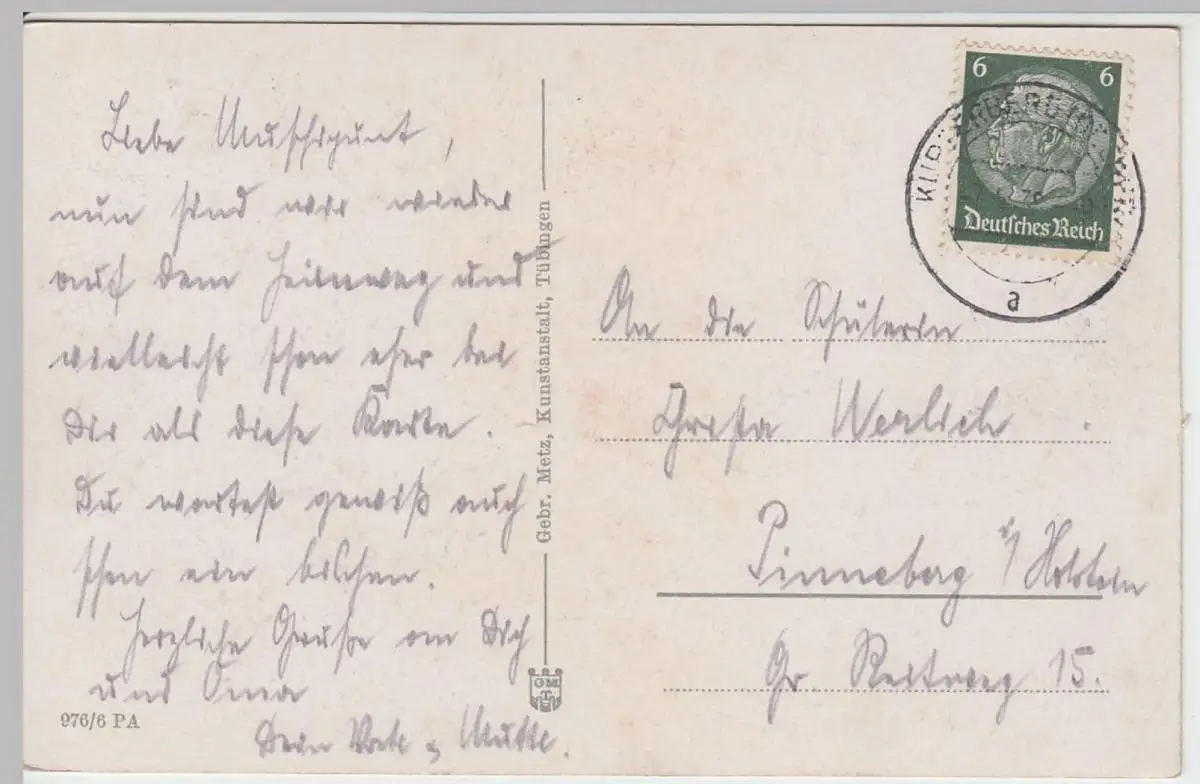 Liebe Muschipunt,
nun sind wir wieder
auf dem Heimweg und
vielleicht schon eher bei
Dir als diese Karte.
Du wartest gewiß auch
schon ein bischen.
Herzliche Grüße an Dich
und Oma
Dein Vati u Mutti.
976/6 PA
Gebr. Metz, Kunstanstalt, Tübingen
GM
T
6 6
Deutsches Reich
a
An die Schülerin
Christa Werlich.
Pinneberg i/Holstein
Gr. Reitweg 15.